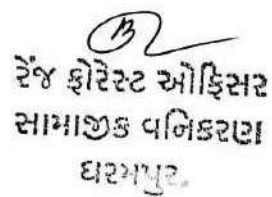 રેંજ ફોરેસ્ટ ઓફિસર
સામાજીક વનિકરણ
ધરમપુર.